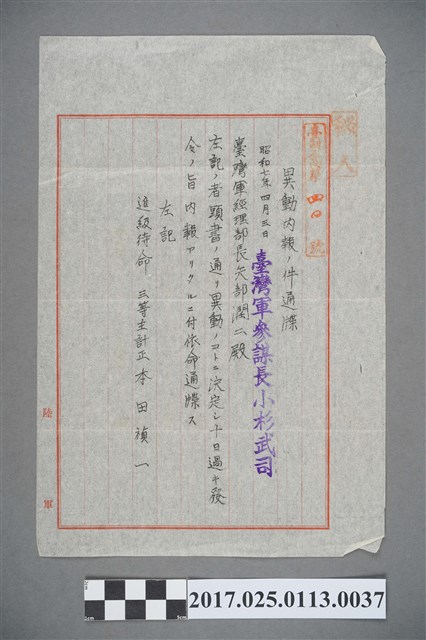 異動内報ノ件通牒
昭和七年四月三日
臺灣軍參謀長小杉武司
臺灣軍經理部長矢部潤二殿
左記ノ者頭書ノ通リ異動ノコトニ決定シ十日過キ發
令ノ旨内報アリタルニ付依命通牒ス
左記
進級待命 三等主計正本田禎一
陸軍
2017.025.0113.0037